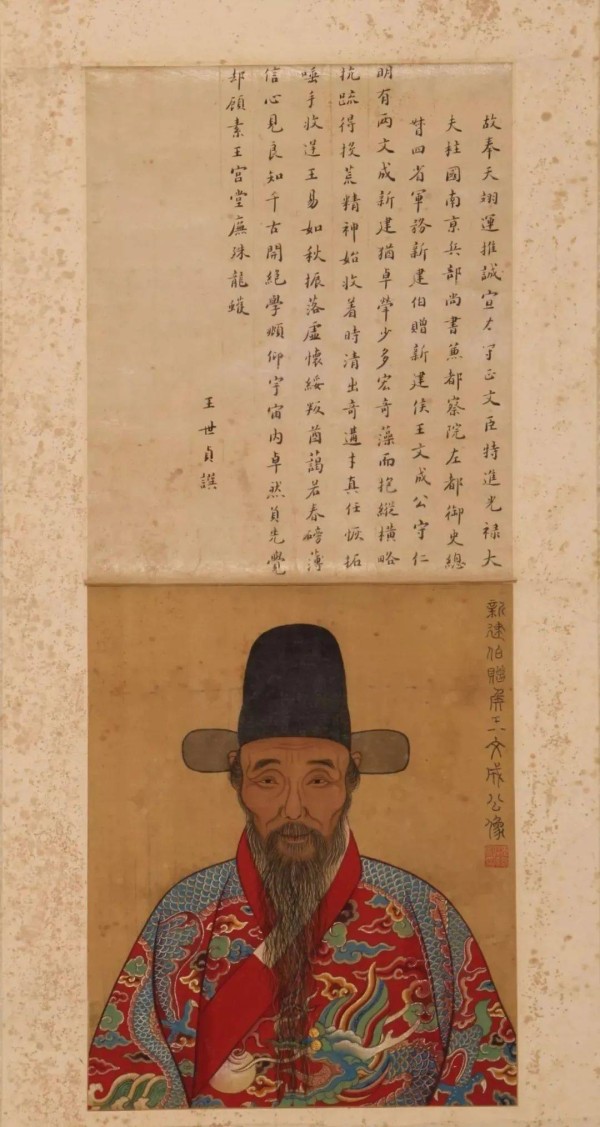 故奉天翊運推誠宣力守正文臣特進光禄大
夫柱國南京兵部尚書兼都察院左都御史總
督四省軍務新建伯贈新建侯王文成公守仁
明有兩文成新建猶卓犖少多宏奇藻而抱縱橫略
抗疏得投荒精神始收着時清出奇遘才真任恢拓
唾手收逆王易如秋振落虛懷綏叛酋藹若春磅薄
信心見良知千古開絕學頫仰宇宙內卓然負先覺
却顧素王宮堂廡殊龍蠖
王世貞譔
新建伯贈侯王文成公像